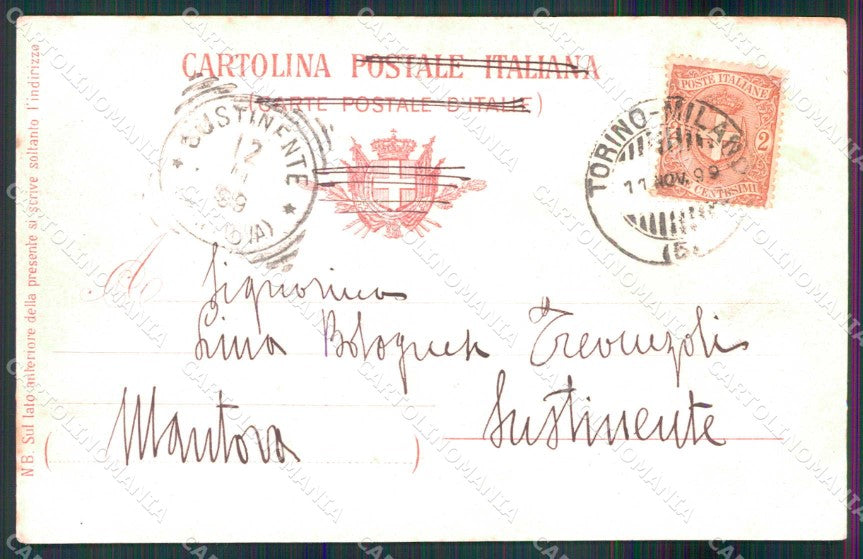 CARTOLINA POSTALE ITALIANA
(CARTE POSTALE D'ITALIE)
NB. Sul lato anteriore della presente si scrive soltanto l'indirizzo
SUSTINENTE
12
99
POSTE ITALIANE
2
CENTESIMI
TORINO-MILANO
11 NOV. 99
(5)
A Signorina
Lina Trevenzoli
Sustinente
(Mantova)
CARTOLINOMANIA